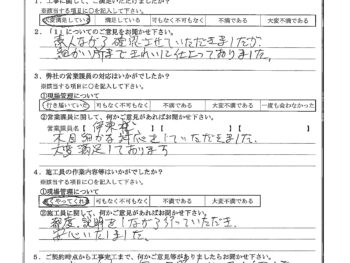 1. 工事に関して、ご満足いただけましたか？
※該当する項目に○を記入して下さい。
大変満足している 満足している 可もなく不可もなく 不満である 大変不満である
2. 「1」についてのご意見をお聞かせ下さい。
素人ながら確認させていただきましたが、
細かい所まできれいに仕上っておりました。
3. 弊社の営業職員の対応はいかがでしたか？
※該当する項目に○を記入して下さい。
①現場管理について
行き届いていた 可も不可もなく 不満である 大変不満である 一度も会わなかった
②営業職員に関して、何かご意見があればお聞かせ下さい。
営業職員名【 伊東様 】【 】【 】
細かな対応をしていただきました。
大変満足しております
4. 施工員の作業内容等はいかがでしたか？
※該当する項目に○を記入して下さい。
①現場管理について
よくやってくれた 可も不可もなく 不満である 大変不満である
②施工員に関して、何かご意見があればお聞かせ下さい。
都度、説明をしながら行っていただき、
安心いたしました。
5. ご契約時点から工事完工まで、何かご意見等がありましたらお聞かせ下さい。